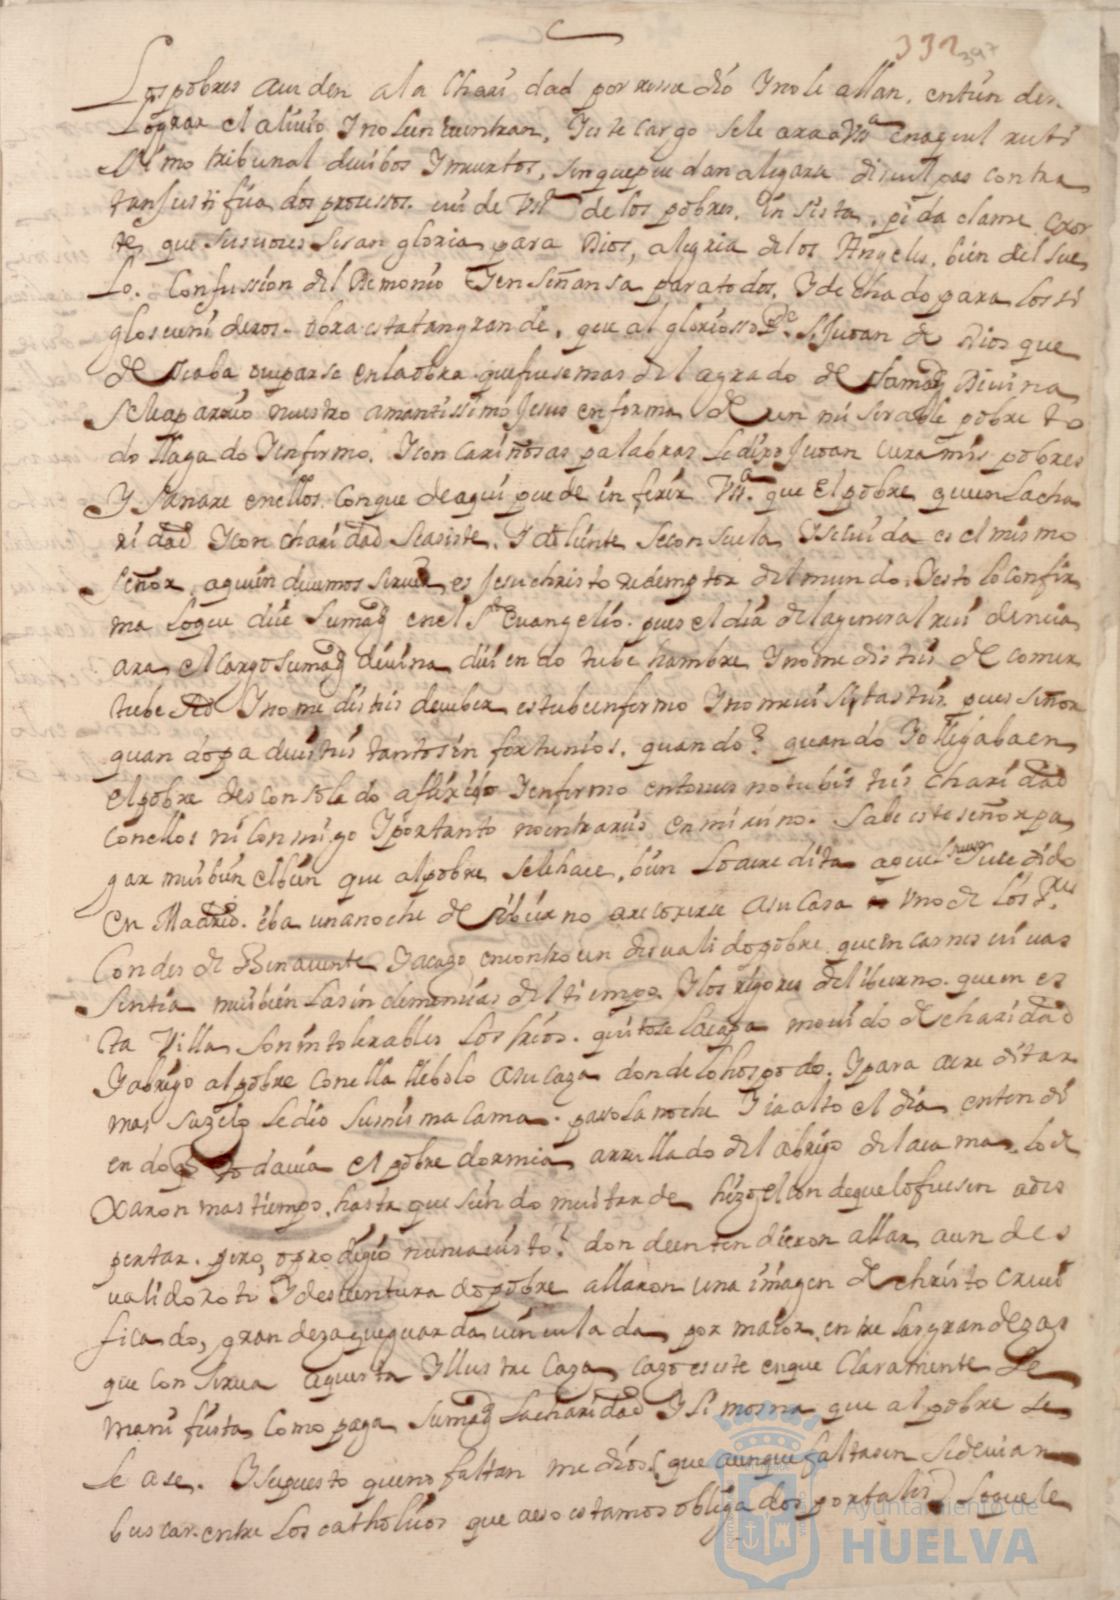 332
397
Los pobres acuden a la charidad por remedio Y no le allan. entienden
Lograr el alivio Y no le encuentran. Y este cargo se le ara a Vsª en aquel recti
ssimo tribunal de vibos Y muertos, sin que puedan alegarse disculpas contra
tan justificados procesos. cuide Vsª de los pobres. insista, pida clame exor
te, que sus voces seran gloria para Dios, alegria de los Angeles, bien del sue
Lo. Confussion del Demonio Y enseñansa para todos. Y dechado para los si
glos venideros. obra es tatan grande, que al gloriosso Pe. S. Juan de Dios que
deseaba ocuparse en la obra que fuese mas del agrado de su Magd Divina
Se le aparecio nuestro amantissimo Jesus en forma de un miserable pobre to
do llagado Y enfermo. Y con cariñosas palabras le dixo Juan cura mis pobres
Y sanare en ellos. Conque de aqui puede inferir Vsª. que el pobre a quien la cha
ridad Y con charidad se asiste. Y doliente se consuela Y se cuida es el mismo
Señor, a quien devemos servir es Jesuchristo redemptor del mundo. Y esto lo confir
ma lo que dice su Magd en el Sto Evangelio. pues el dia de la general residencia
ara el cargo su Magd divina diciendo tube hambre Y no me disteis de comer
tube sed Y no me disteis de veber estube enfermo Y no me visitasteis. pues señor
quando padecisteis tantos infortunios. quando? quando Yo llegaba en
el pobre desconsolado afligido Y enfermo entonces no tubisteis charidad
con ellos ni conmigo Y por tanto no entrareis en mi reino. Sabe este señor pa
gar mui bien el bien que al pobre se le hace, bien lo acredita aquel caso sucedido
en Madrid. iba una noche de ibierno a recoxerse a su casa uno de los Sres
Condes de Benavente Y acaso encontro un desvalido pobre que en carnes vivas
sentia mui bien las inclemencias del tiempo Y los rigores del ibierno. que en es
ta Villa son intolerables los frios. quitose la capa movido de charidad
Y abrigo al pobre con ella llebolo a su caza donde lo hospedo. Y para acreditar
mas su zelo le dio su misma cama. paso la noche Y ia alto el dia entendi
endo q todavia el pobre dormia arrullado del abrigo de la cama, lo de
xaron mas tiempo, hasta que siendo mui tarde hizo el conde que lo fuesen a des
pertar. pero, o prodigio nunca visto! donde entendieron allar a un des
valido roto Y desventurado pobre allaron una imagen de christo cruci
ficado, grandeza que guarda vinculada por maior entre las grandezas
que conserva aquesta Yllustre Caza, cazo es este en que claramente se
manifiesta como paga su Magd la charidad Y limosna que al pobre se
le ase. Y supuesto que no faltan medios, que aunque faltasen se devian
buscar entre los catholicos que a eso estamos obligados por tales. lo que le
Ayuntamiento de
HUELVA